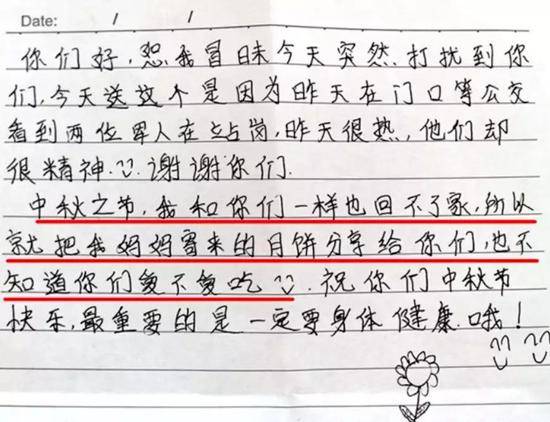 Date: / /
你们好,恕我冒昧今天突然打扰到你
们,今天送这个是因为昨天在门口等公交
看到两位军人在站岗,昨天很热,他们却
很精神.谢谢你们.
中秋之节,我和你们一样也回不了家,所以
就把我妈妈寄来的月饼分享给你们,也不
知道你们爱不爱吃.祝你们中秋节
快乐,最重要的是一定要身体健康哦!